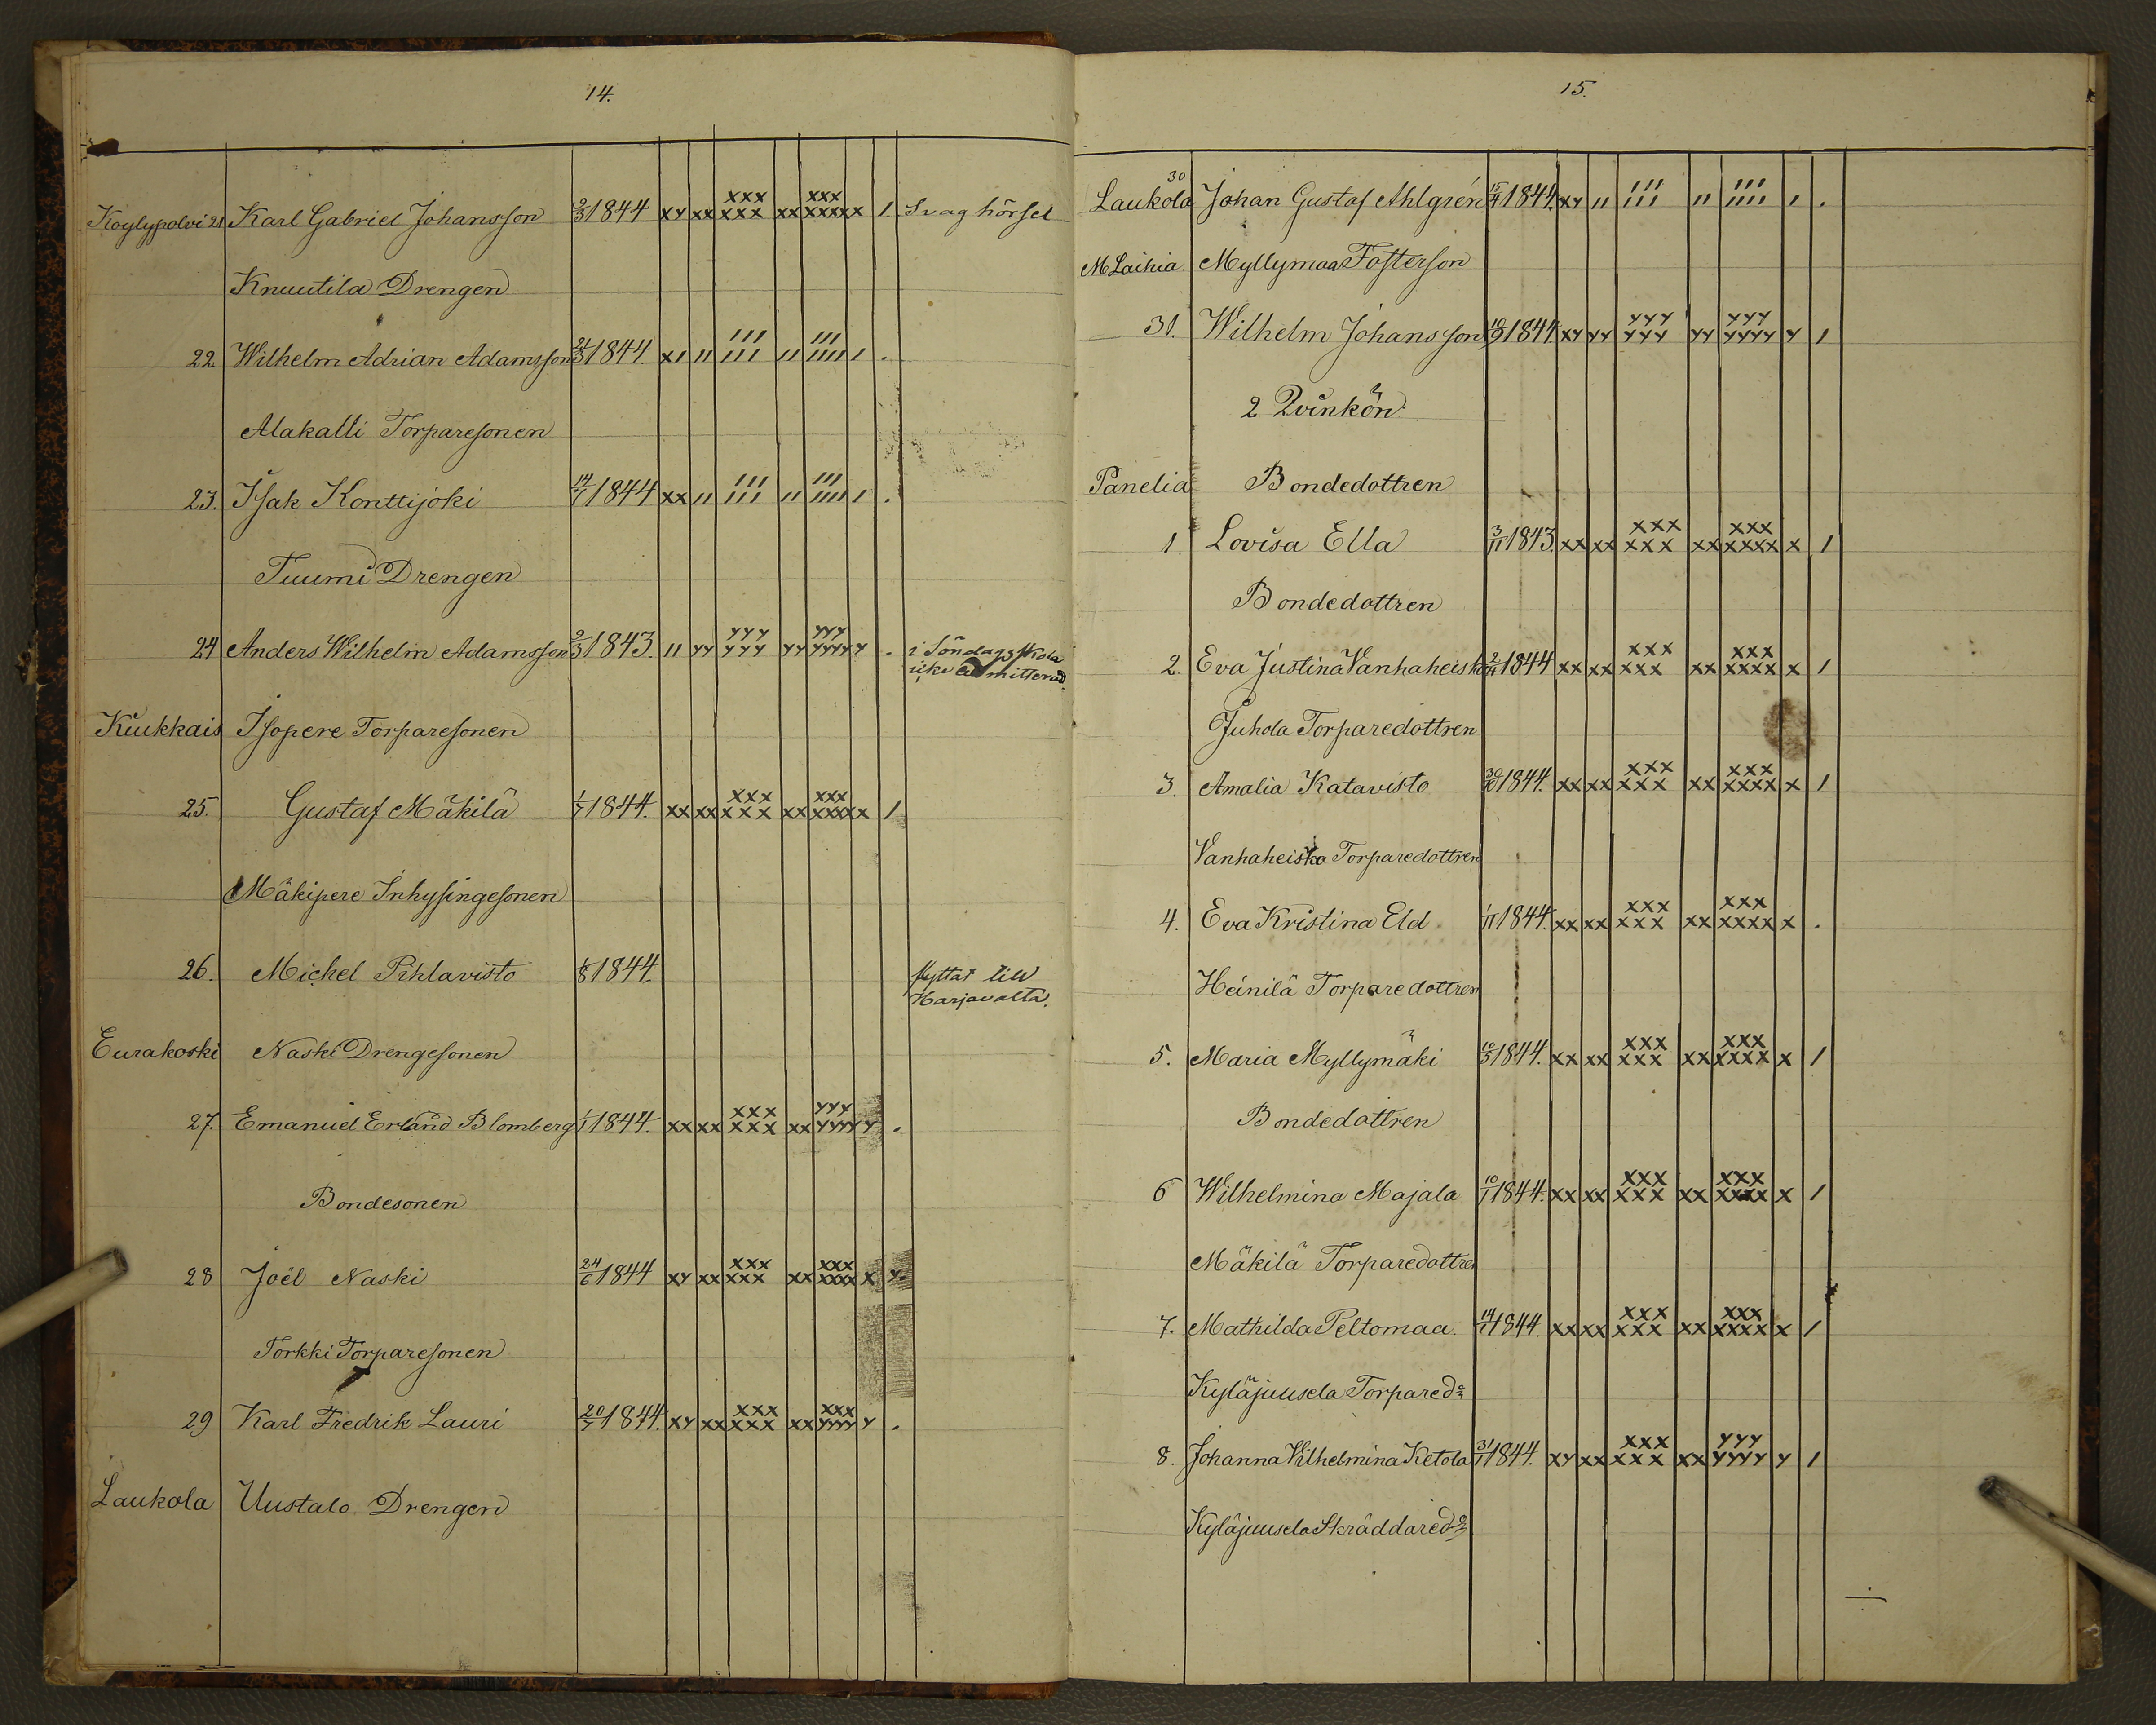 14.
Koylypolvi 21 Karl Gabriel Johansson 2/3 1844 xy xx xxx xxx xx xxx xxxxx 1 Svag hörsel
Knuutila Drengen
22 Wilhelm Adrian Adamsson 21/3 1844. x1 11 111 111 11 111 11111 1 .
Alakalli Torparesonen
23. Isak Konttijoki 14/7 1844 xx 11 111 111 11 111 1111 1 .
Tuumi Drengen
24 Anders Wilhelm Adamsson 2/3 1843. 11 yy yyy yyy yy yyy yyyy y . i Söndagsskola
icke admitterad.
Kiukkais Isopere Torparesonen
25. Gustaf Mäkilä 1/7 1844. xx xx xxx xxx xx xxx xxxx x 1
Mäkipere Inhysingesonen
26. Michel Pihlavisto 1/8 1844. flyttat till
Harjavalta.
Eurakoski Naski Drengesonen
27. Emanuel Erland Blomberg 1/1 1844. xx xx xxx xxx xx yyy yyyy y .
Bondesonen
28 Joël Naski 24/6 1844 xy xx xxx xxx xx xxx xxxx x y.
Torkki Torparesonen
29 Karl Fredrik Lauri 20/7 1844. xy xx xxx xxx xx xxx yyyy y .
Laukola Uustalo Drengen
15.
30
Laukola Johan Gustaf Ahlgrén 15/4 1844. xy 11 111 111 11 111 1111 1 .
M Laihia Myllymaa Fosterson
31. Wilhelm Johansson 1844 xy yy yyy yyy yy yyy yyyy y 1
2 Qvinkön
Panelia Bondedottren
1 Lovisa Ella 3/11 1843. xx xx xxx xxx xx xxx xxxx x 1
Bondedottren
2. Eva Justina Vanhaheiska 1844 xx xx xxx xxx xx xxx xxxx x 1
Juhola Torparedottren
3. Amalia Katavisto 30/10 1844. xx xx xxx xxx xx xxx xxxx x 1
Vanhaheiska Torparedottren
4. Eva Kristina Eld 1/11 1844. xx xx xxx xxx xx xxx xxxx x .
Heinilä Torparedottren
5. Maria Myllymäki 1844. xx xx xxx xxx xx xxx xxxx x 1
Bondedottren
6 Wilhelmina Majala 10/1 1844. xx xx xxx xxx xx xxx xxxx x 1
Mäkilä Torparedottren
7. Mathilda Peltomaa. 14/1 1844 xx xx xxx xxx xx xxx xxxx x 1
Kyläjuusela Torpared:n
8. Johanna Vilhelmina Ketola 31/1 1844. xy xx xxx xxx xx yyy yyyy y 1
Kyläjuusela Skräddared:n